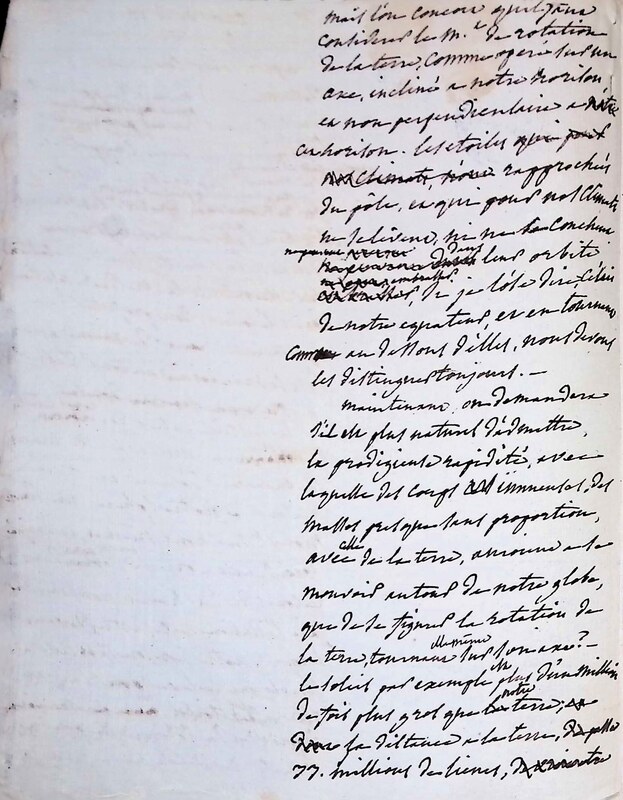 mais l'on concoit qu'il faut
considerer le m.t de rotation
de la terre, comme operé sur un
axe, incliné a notre horison
et non perpendiculaire a notre
cet horison. les etoiles qui pour
nos climats, rapprochés
du pole, et qui pour nos climats
ne se levent, ni ne se couchent
dans leur orbite
embrasser, si je l'ose dire, celui
de notre equateur, et en tournant
comme au dessous d'elles, nous devons
les distinguer toujours. —
maintenant, on demandera
s'il est plus naturel d'admettre,
la prodigieuse rapidité, avec
laquelle des corps immenses, des
masses presque sans proportion,
avec celle de la terre, auroient a se
mouvoir autour de notre globe,
que de se figurer la rotation de
la terre, tournant elle même sur son axe? —
le soleil par exemple est plus d'un million
de fois plus gros que notre terre;
sa distance a la terre, passe
33. millions de lieues,